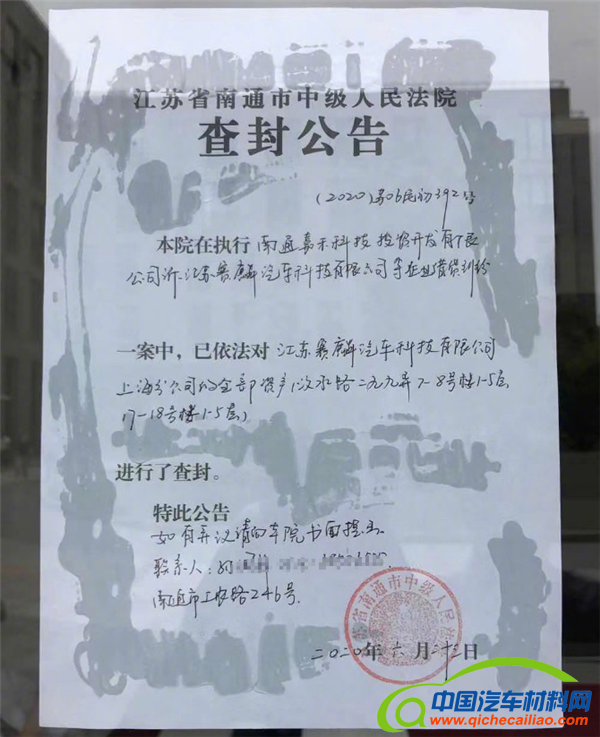 江苏省南通市中级人民法院
查封公告
(2020)苏06民初392号
本院在执行 南通嘉禾科技投资开发有限
公司诉江苏赛麟汽车科技有限公司等企业借贷纠纷
一案中，已依法对 江苏赛麟汽车科技有限公司
上海分公司的全部资产(汶水路二九九弄7-8号楼1-5层
17-18号楼1-5层)
进行了查封。
特此公告
如有异议请向本院书面提出
联系人:
南通市工农路246号.
二〇二〇年六月二十三日
省南通市中级人民
中国汽车材料网
www.qichecailiao.com